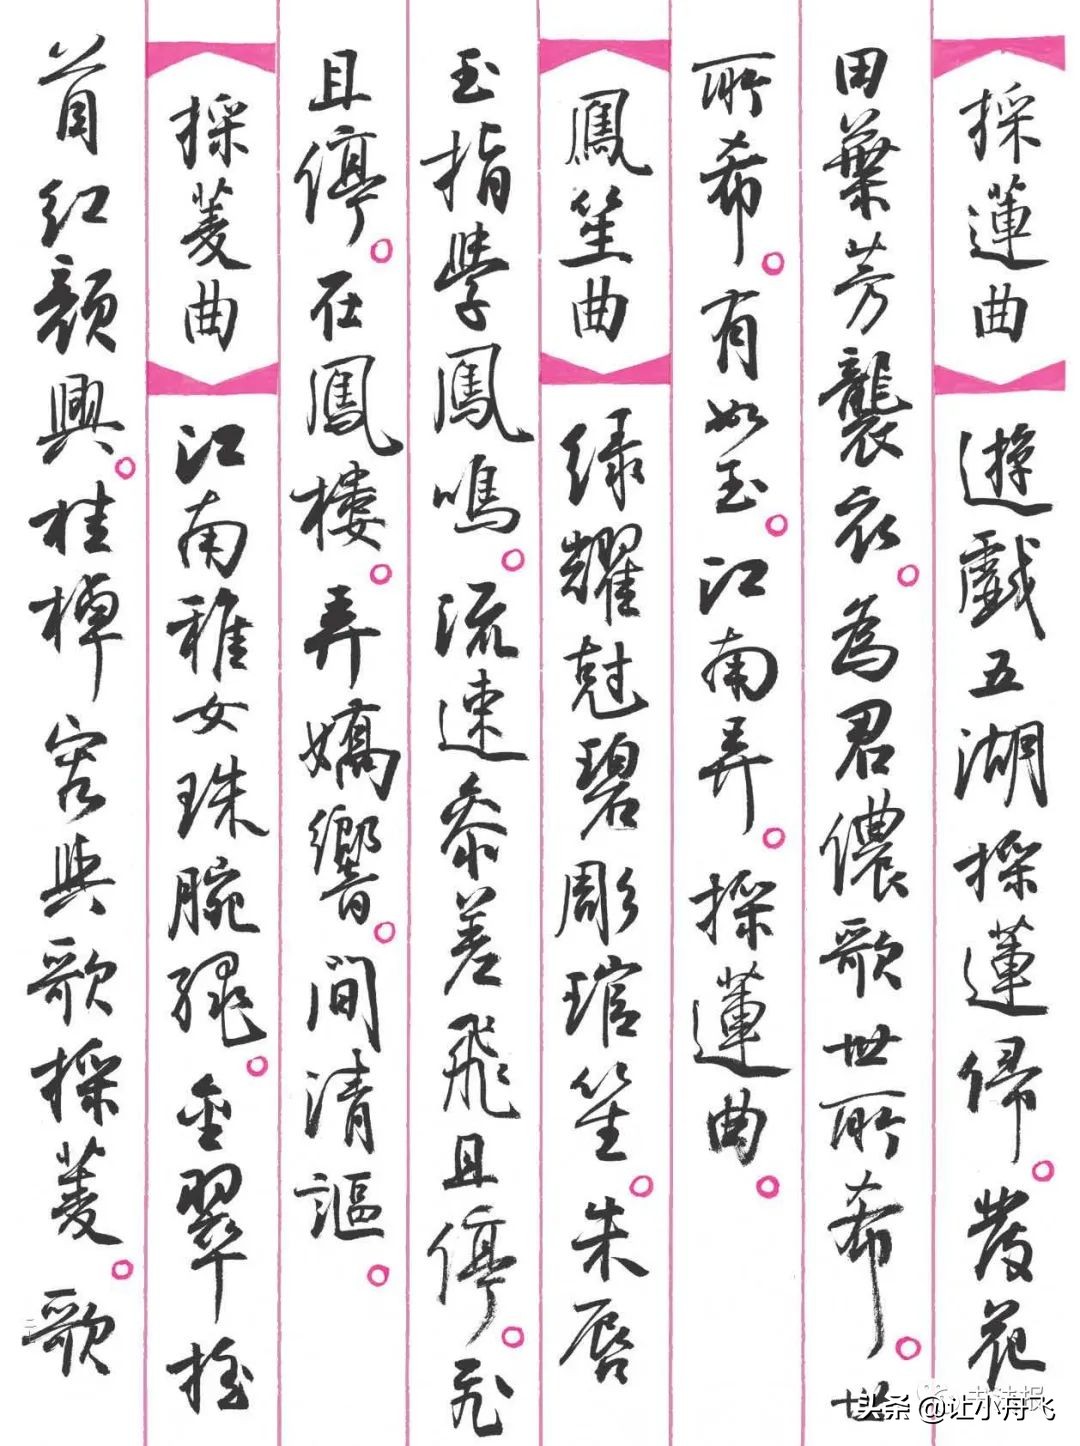 採蓮曲 遊戲五湖採蓮歸。發花
田葉芳襲衣。為君儂歌世所希。世
所希。有如玉。江南弄。採蓮曲。
鳳笙曲 绿耀尅碧彫琯笙。朱唇
玉指學鳳鳴。流速參差飛且停。飛
且停。在鳳樓。弄嬌響。間清謳。
採菱曲 江南稚女珠腕繩。金翠搖
首紅顏興。桂棹容與歌採菱。歌
书法报
头条 @让小舟飞